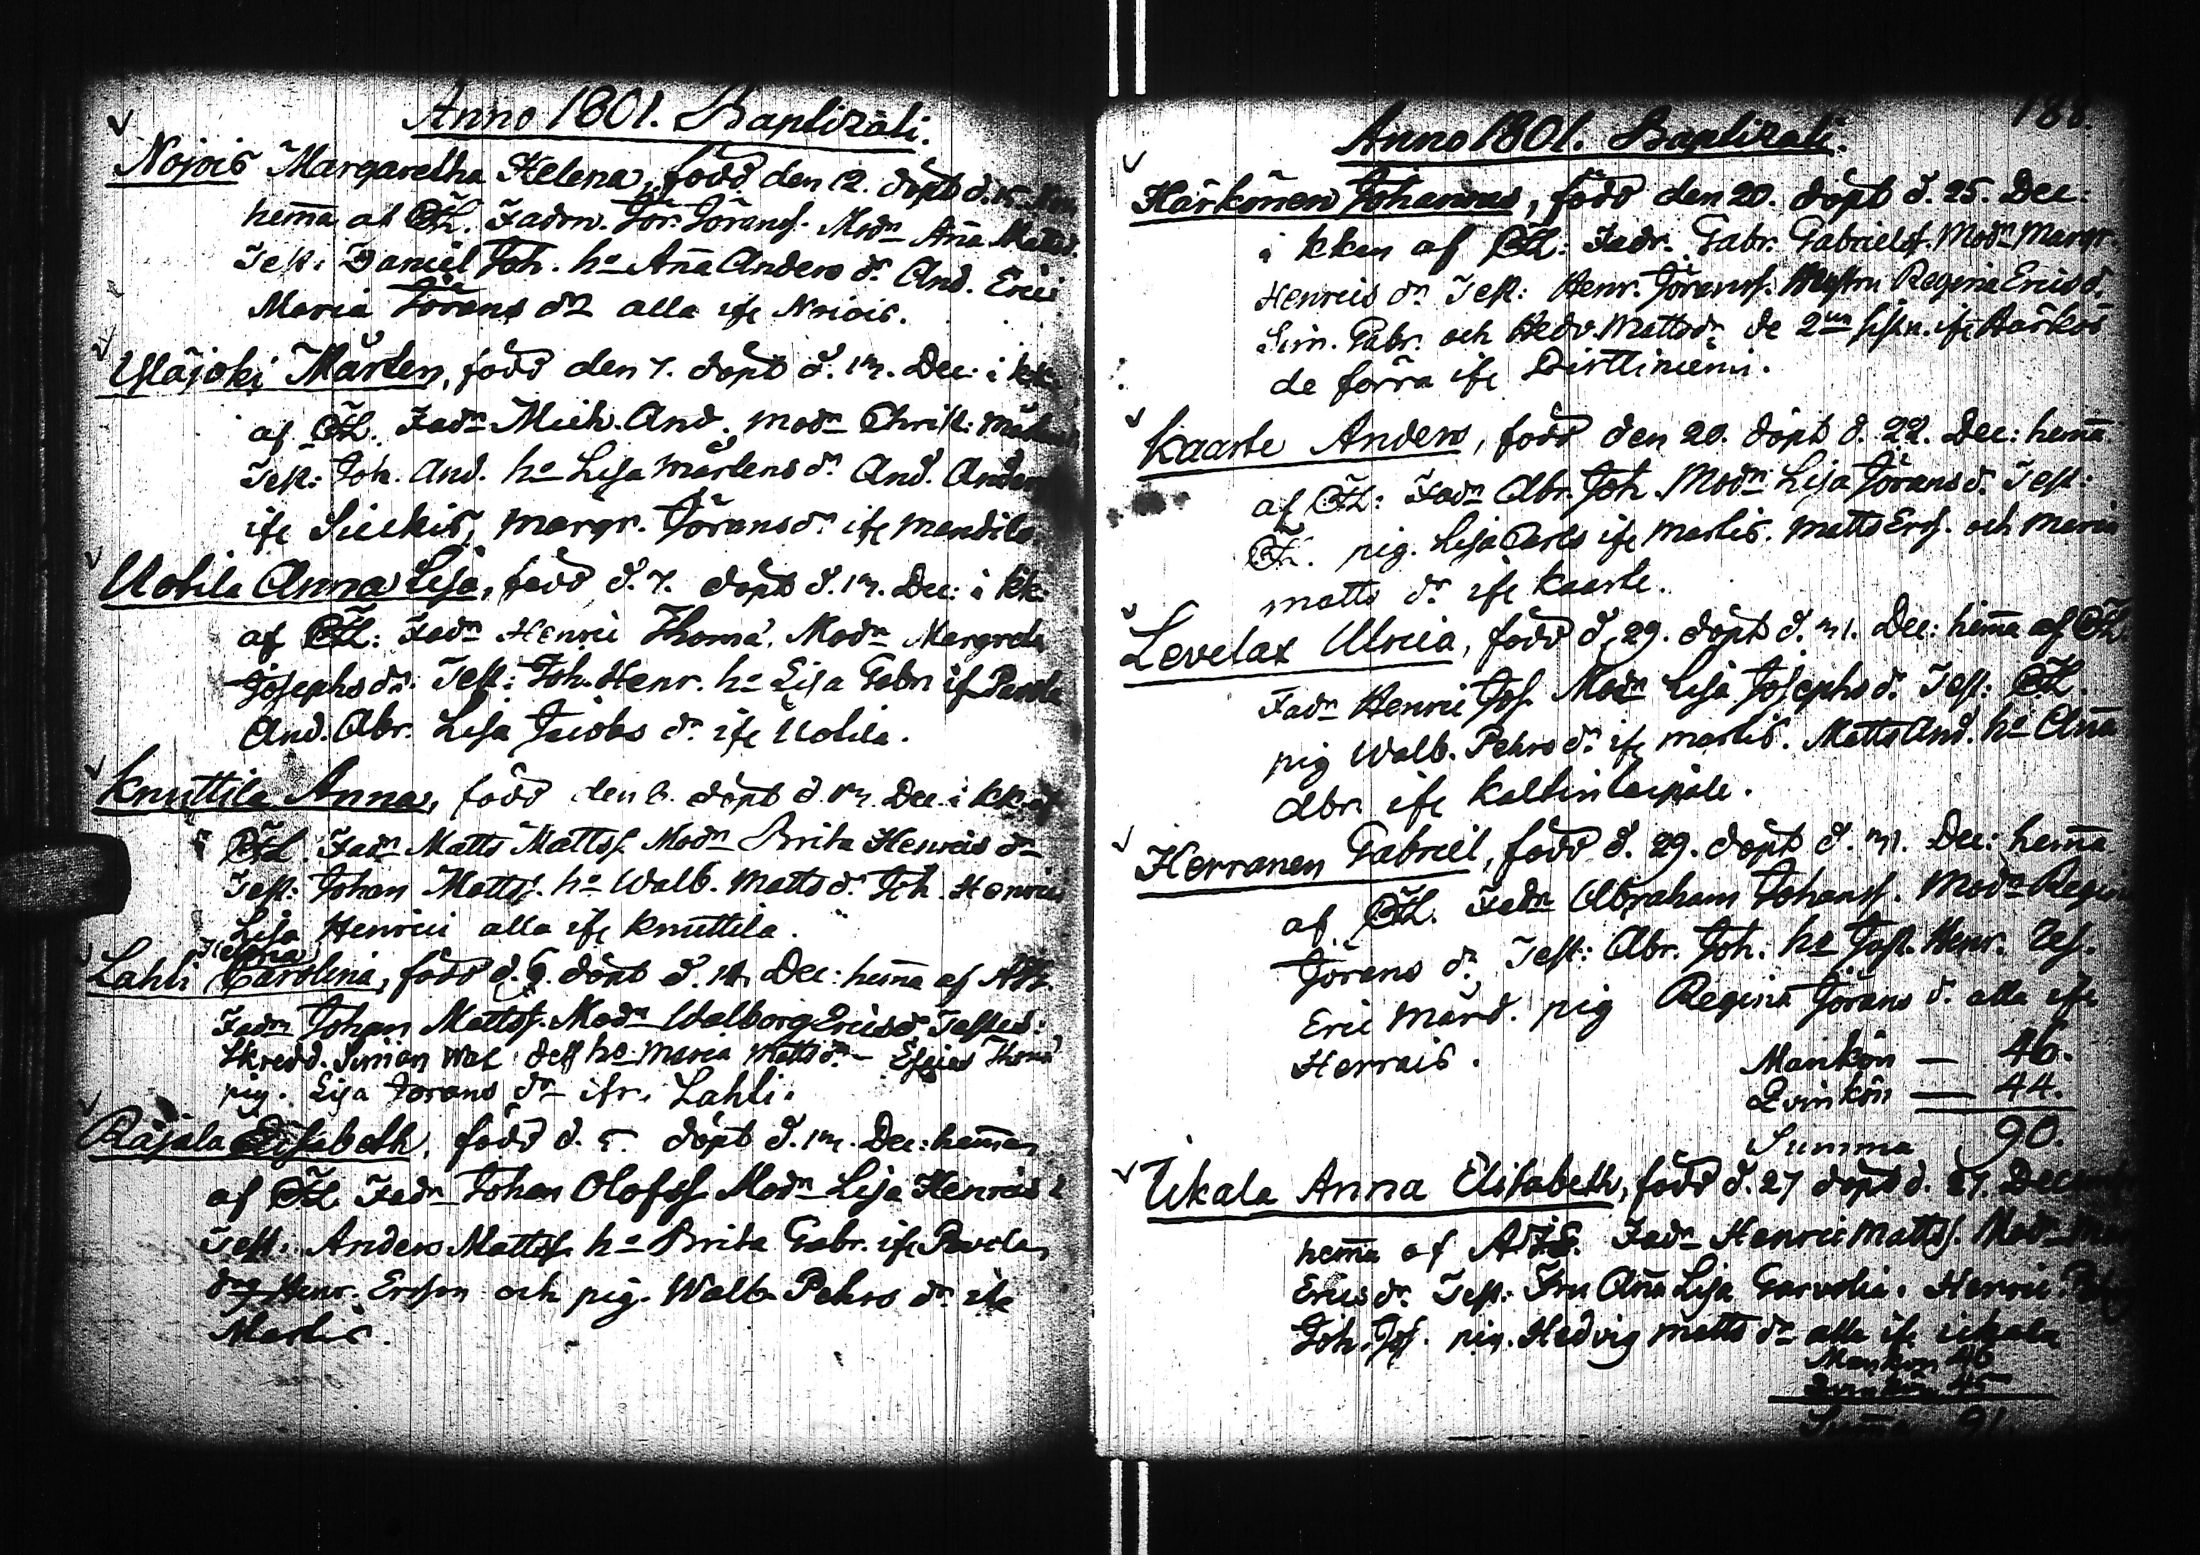 Anno 1801. Baptizati.
Nojois Margaretha Helena, född den 12. döpt d. 15. Nov
hem̄a af CHL. Fadrn. Jör. Göranss. Modn Ańa Matts
Test: Daniel Joh. ho Ańa Anders dr And. Erici
Maria Görans dr alla ifr Noiois.
Yläjoki Mårten, född den 7. döpt d. 13. Dec: i kk
af CHL. Fadn Mich. And. modn Christ:
Test: Joh. And. ho Lisa Mårtens dr And. Anders
ifr Sieckis, Margr. Görans dr ifr Mandila.
Uotila Anna Lisa, född d. 7. döpt d. 13. Dec: i kk
af CHL: Fadn Henric Thomæ. Modn Margreta
Josephs dr. Test: Joh. Henr. ho Lisa Gabr ifr Pavola
And. Abr. Lisa Jacobs dr ifr Uotila.
Knuttila Anna, född den 6. döpt d. 13. Dec. i kk af
CHL. Fadn Matts Mattss. Modn Brita Henrics dr
Test: Johan Mattss. ho Walb. Matts dr Joh. Henrics
Lisa Henrici alla ifr Knuttila.
Helena
Lahti Carolina, född d. 9. döpt d. 14. Dec: hem̄a af
Fadn Johan Mattss. Modn Walborg Erics dr Testes:
Skredd. Simon Wal. dess ho Maria Matts dr Thomæ
pig. Lisa Görans dr ifr. Lahti.
Räjsala Elisabeth, född d. 5. döpt d. 13. Dec: hem̄a
af CHL Fadn Johan Olofss Modn Lisa Henrics
Test: Anders Mattss. ho Brita Gabr. ifr Pavola
dg Henr. Ersson och pig. Walb Pehrs dr ifr
Martis.
188.
Anno 1801. Baptizati.
Härkönen Johannes, född den 20. döpt d. 25. Dec:
i kkan af CHL: Fadr. Gabr. Gabrielss. Modn Margr.
Henrics dr Test: Henr. Göranss. Regina Erics d.
Sim. Gabr. och Hedv. Matts dr de 2ne sistn. ifr Härkös
de förra ifr Pirttiniemi.
Kaarte Anders, född den 20. döpt d. 22. Dec: hem̄a
af CHL: Fadn Abr. Joh. Modn Lisa Görans d. Test:
CHL. pig. Lisa Carls ifr Martis. Matts Ers. och Maria
Matts dr ifr Kaarte.
Levelax Ulrica, född d. 29. döpt d. 31. Dec: hem̄a af CHL
Fadn Henric Jos. Modn Lisa Josephs d. Test: CHL.
pig Walb. Pehrs dr ifr Martis. Matts And. ho Ańa
Abr. ifr Kaltintaipale.
Herranen Gabriel, född d. 29. döpt d. 31. Dec: hem̄a
af CHL. Fadn Abraham Johanss. Modn Regin
Görans dr Test: Abr. Joh. ho Just. Henr.
Eric Mård. pig Regina Görans d. alla ifr
Herrais.
Mankön — 46.
Qvinkön — 44.
Summa 90.
Ukala Anna Elisabeth, född d. 27 döpt d. 27. December
hem̄a af Fadn Henric Mattss. Modn
Erics dr Test: Fru Ańa Lisa Garvolia. Henric
Joh. Jos. pig. Hedvig Matts dr alla ifr Ukala
Mankön 46
Qvinkön 45
Summa 91.